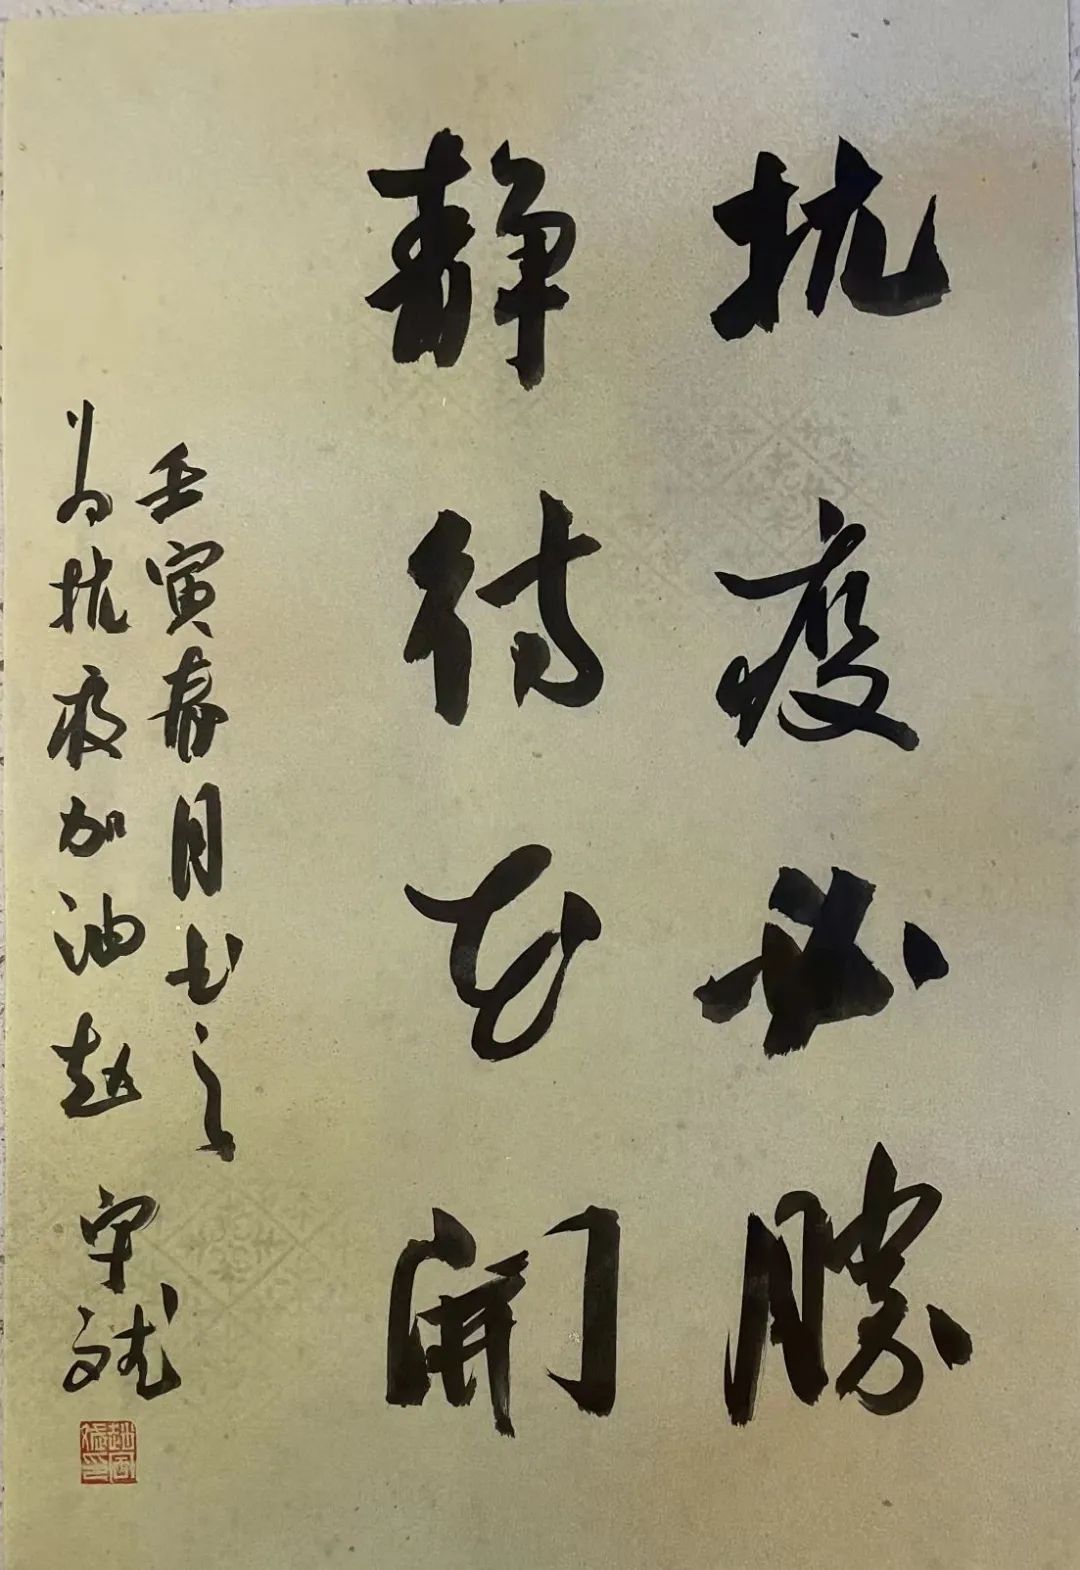 抗疫必勝
静待花開
壬寅春月书之
为抗疫加油赵斌